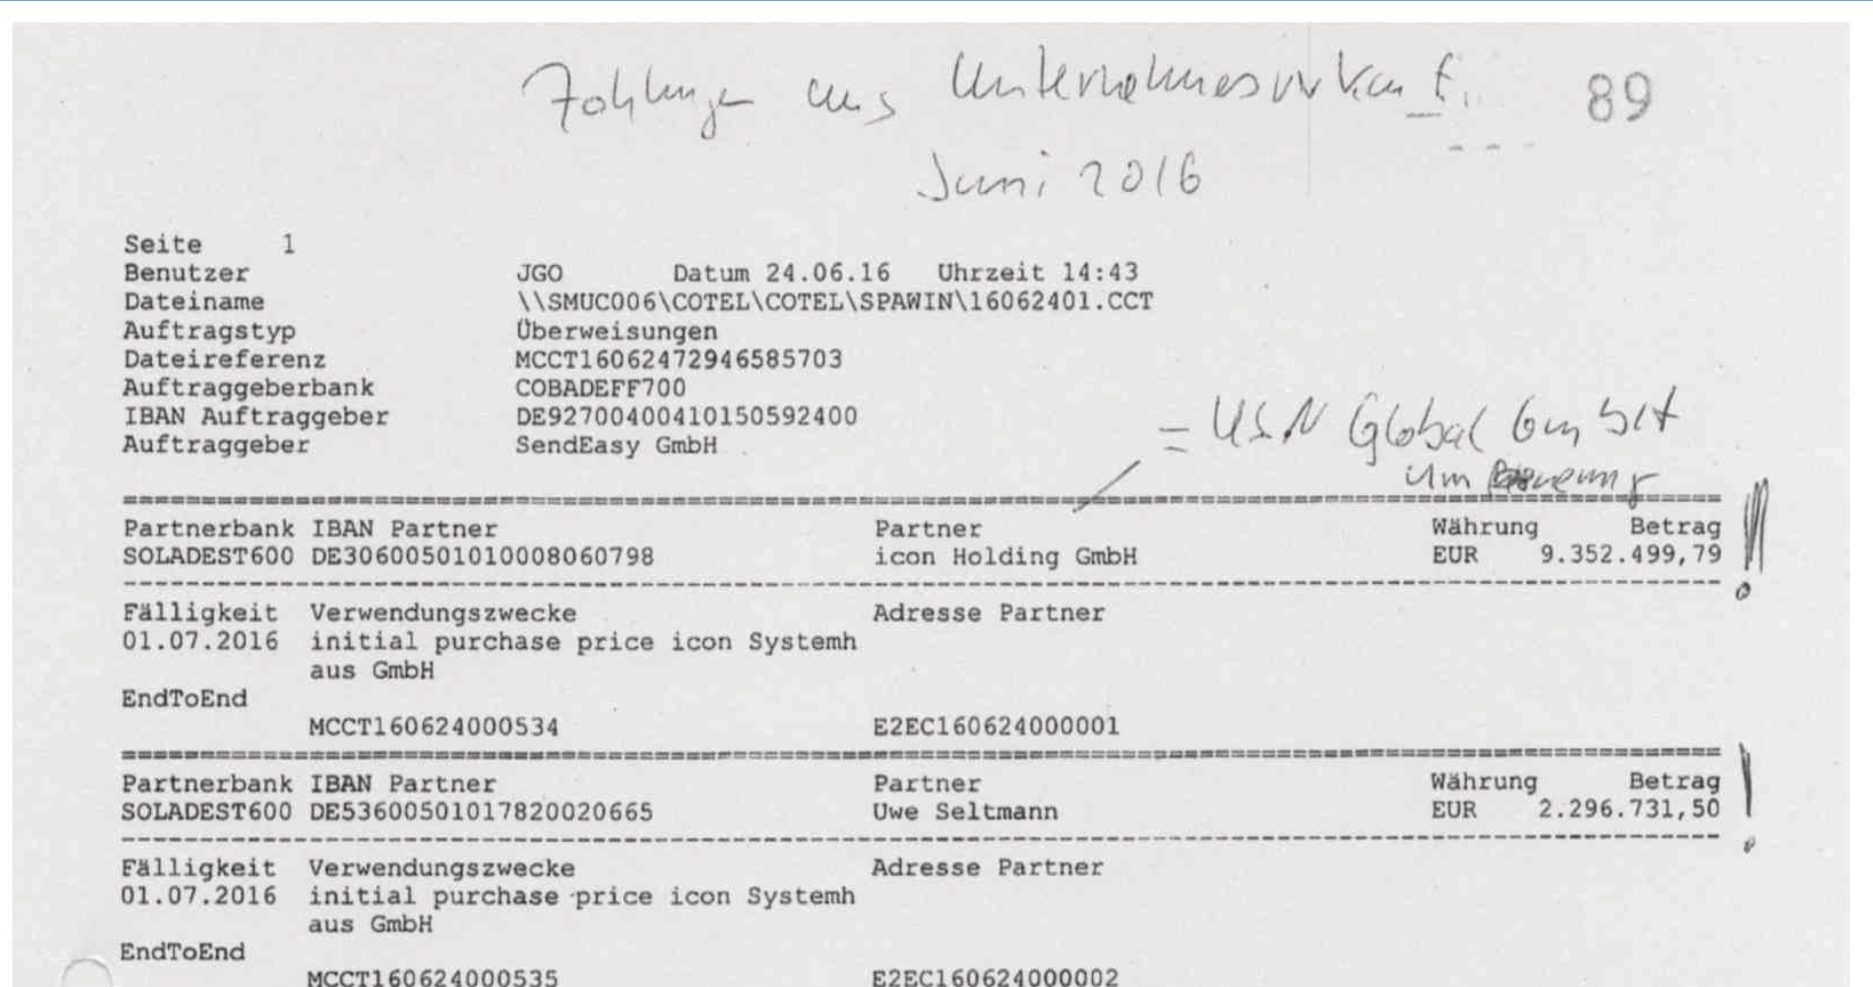 Zahlungen aus Unternehmensverkauf 89
Juni 2016
Seite 1
Benutzer JGO Datum 24.06.16 Uhrzeit 14:43
Dateiname \\SMUC006\COTEL\COTEL\SPAWIN\16062401.CCT
Auftragstyp Überweisungen
Dateireferenz MCCT16062472946585703
Auftraggeberbank COBADEFF700
IBAN Auftraggeber DE92700400410150592400
Auftraggeber SendEasy GmbH
= USN Global GmbH
Umfirmierung
Partnerbank IBAN Partner Partner Währung Betrag
SOLADEST600 DE30600501010008060798 icon Holding GmbH EUR 9.352.499,79 !
Fälligkeit Verwendungszwecke Adresse Partner
01.07.2016 initial purchase price icon Systemh
aus GmbH
EndToEnd
MCCT160624000534 E2EC160624000001
Partnerbank IBAN Partner Partner Währung Betrag
SOLADEST600 DE53600501017820020665 Uwe Seltmann EUR 2.296.731,50 !
Fälligkeit Verwendungszwecke Adresse Partner
01.07.2016 initial purchase price icon Systemh
aus GmbH
EndToEnd
MCCT160624000535 E2EC160624000002